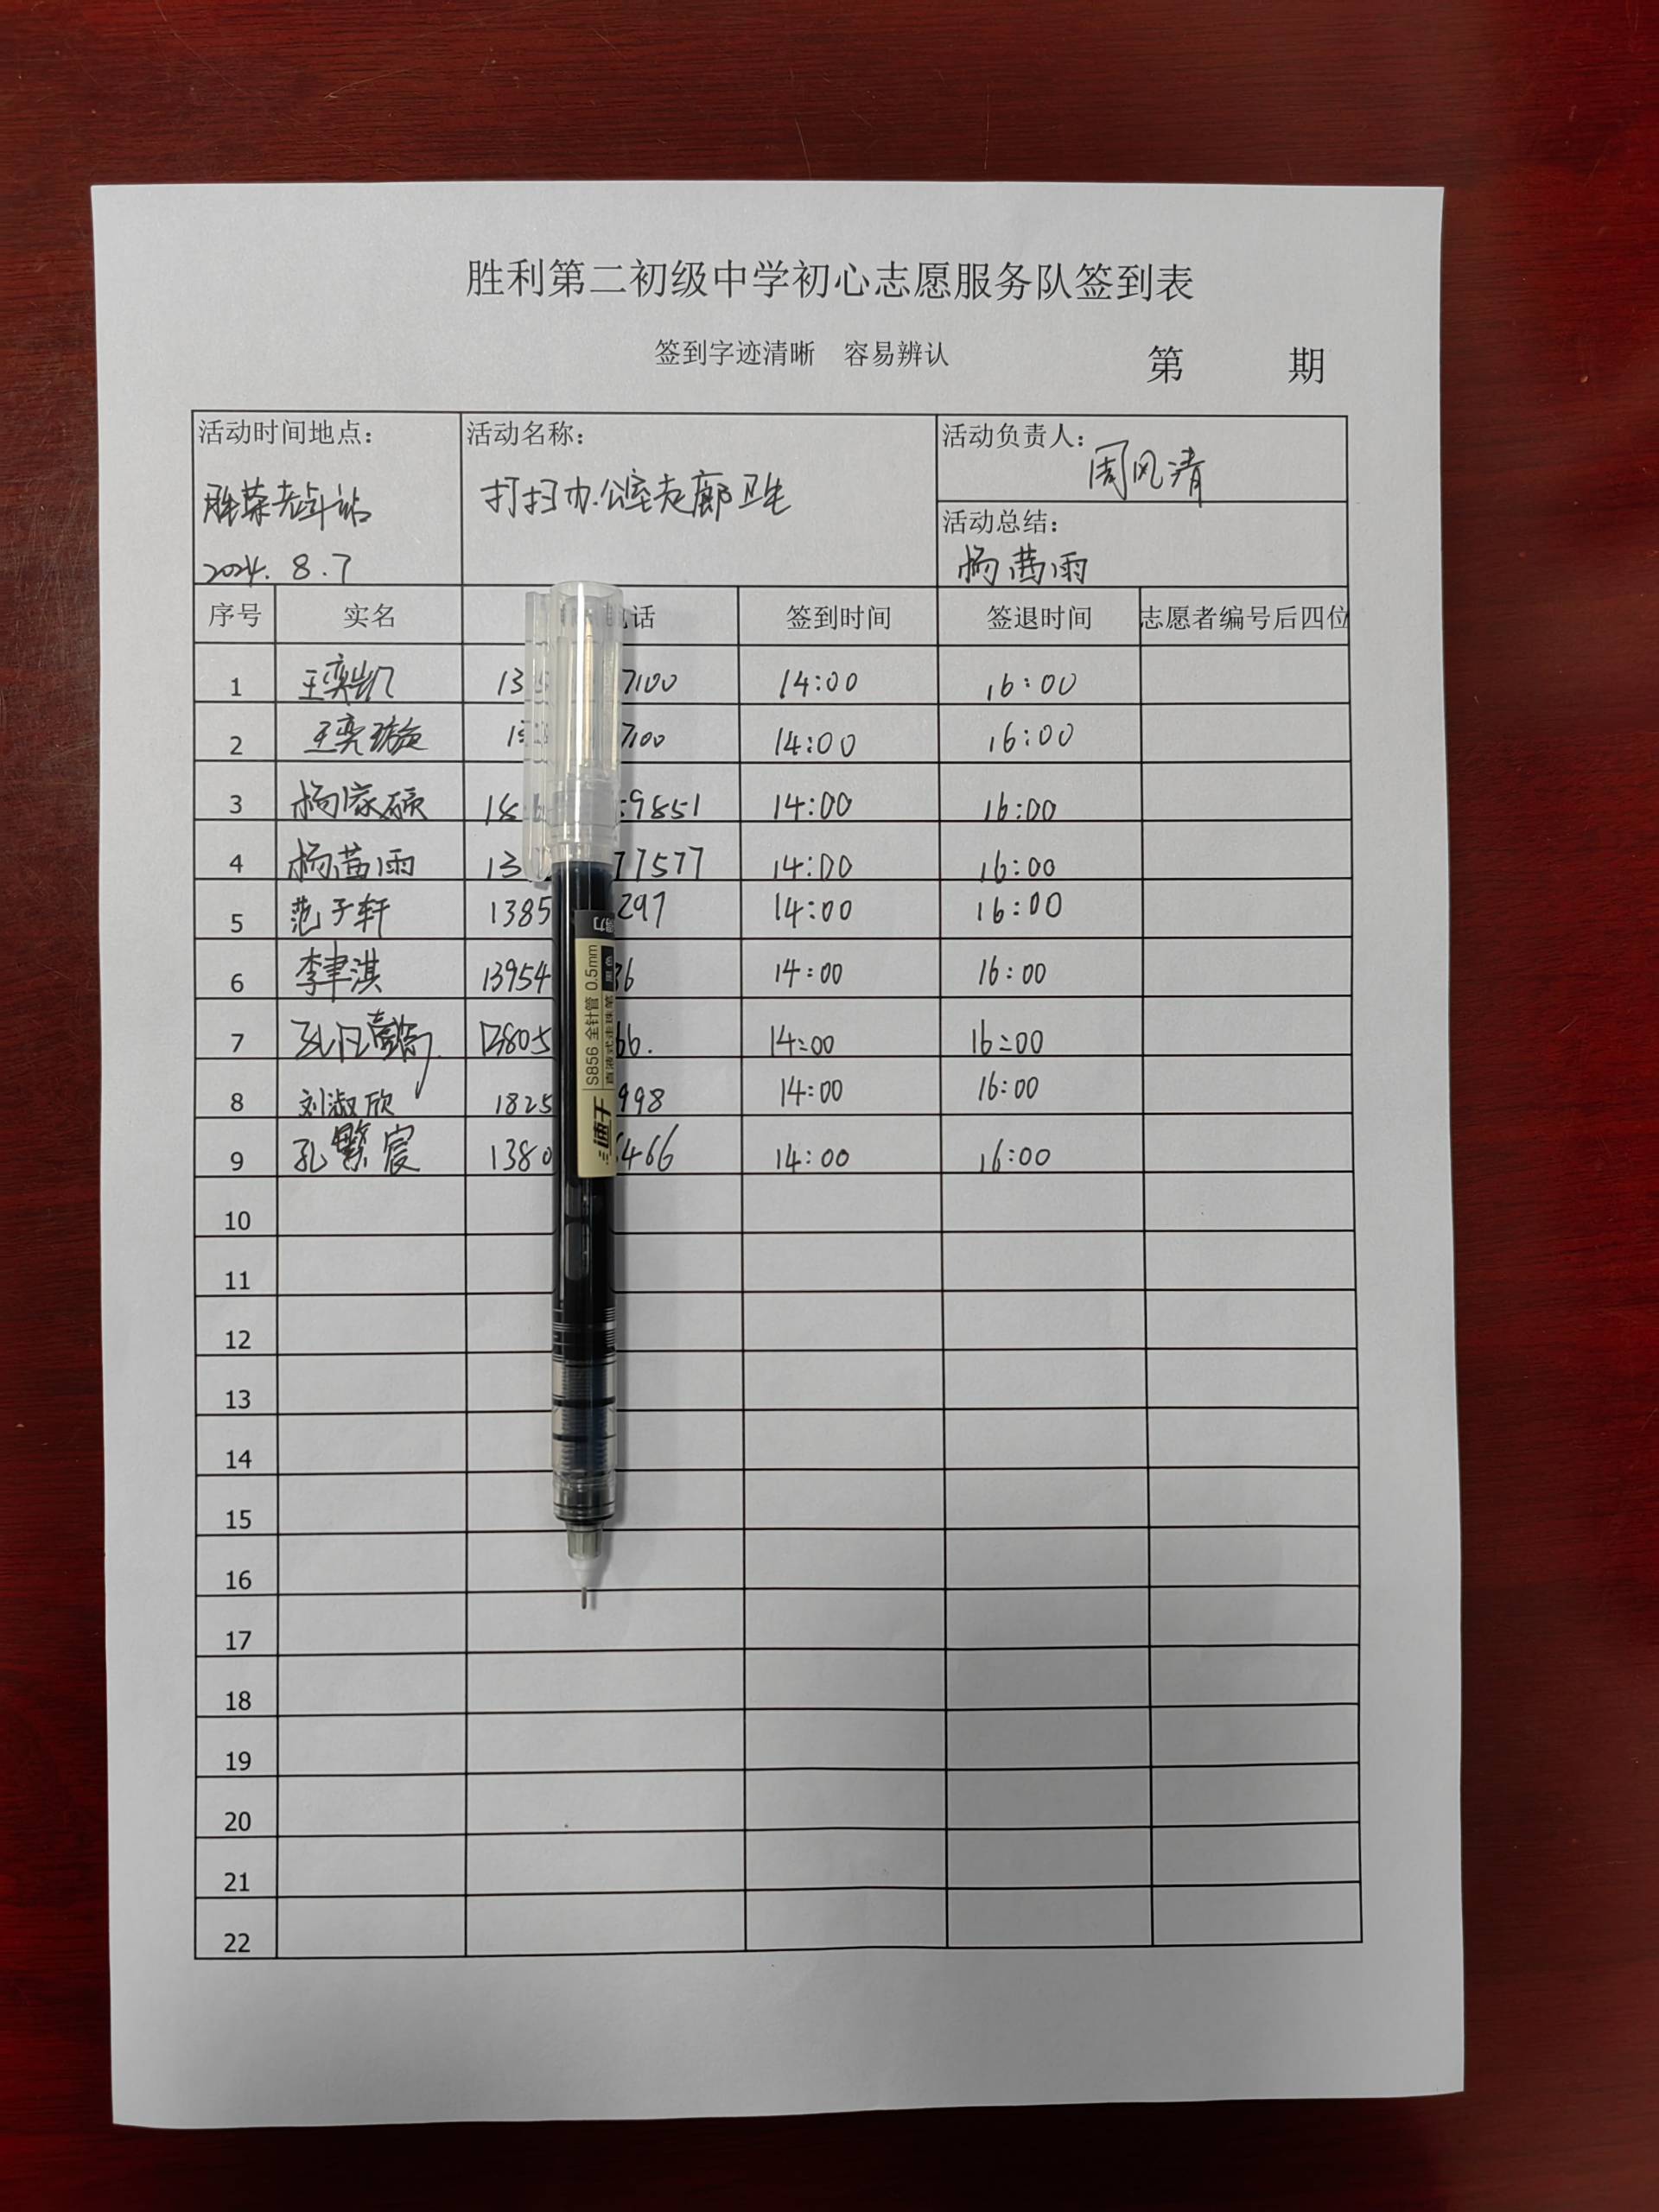 胜利第二初级中学初心志愿服务队签到表
签到字迹清晰 容易辨认 第 期
活动时间地点： 活动名称： 活动负责人：
周风清
打扫办公室走廊卫生
活动总结：
2024. 8. 7 杨茜雨
序号 实名 话 签到时间 签退时间 志愿者编号后四位
1 王奕凯 13 7100 14:00 16:00
2 王奕璇 7100 14:00 16:00
3 杨家硕 18 9851 14:00 16:00
4 杨茜雨 13 77577 14:00 16:00
5 范子轩 1385 297 14:00 16:00
6 李聿淇 13954 36 14:00 16:00
7 13805 66. 14:00 16:00
8 刘淑欣 1825 998 14:00 16:00
9 孔繁宸 1380 466 14:00 16:00
10
11
12
13
14
15
16
17
18
19
20
21
22
S856 全针管 0.5mm
直液式走珠笔 黑色
速干